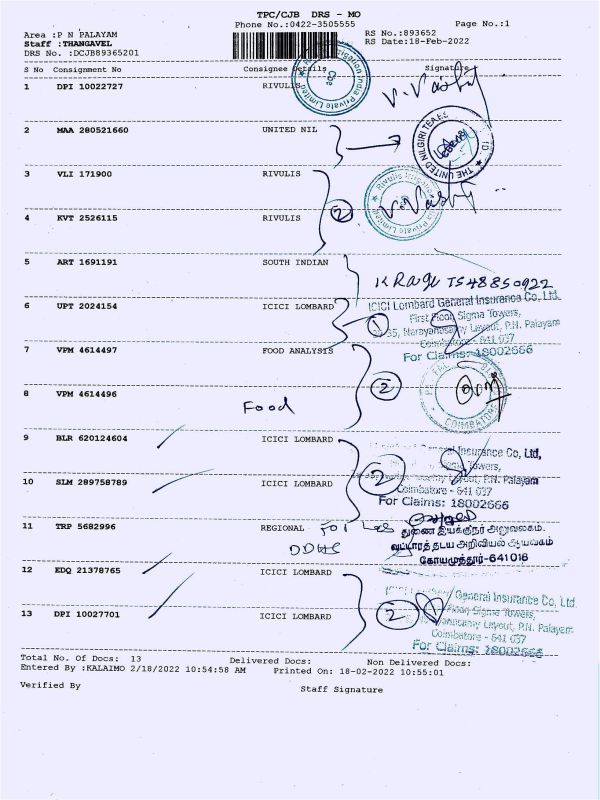 TPC/CJB DRS - MO
Phone No.:0422-3505555
Page No.:1
Area :P N PALAYAM
RS No.:893652
Staff :THANGAVEL
RS Date:18-Feb-2022
DRS No. :DCJB89365201
S No Consignment No Consignee Details Signature
1 DPI 10022727 RIVULIS
2 MAA 280521660 UNITED NIL
THE UNITED NILGIRI TEA
3 VLI 171900 RIVULIS
4 KVT 2526115 RIVULIS
2
5 ART 1691191 SOUTH INDIAN
6 UPT 2024154 ICICI LOMBARD
1
ICICI Lombard General Insurance Co, Ltd.
First Floor, Sigma Towers,
Narayanasamy Layout, P.N. Palayam
Coimbatore - 641 037
For Claims: 18002666
7 VPM 4614497 FOOD ANALYSIS
2
8 VPM 4614496
Food
COIMBATORE
9 BLR 620124604 ICICI LOMBARD
2
General Insurance Co, Ltd,
Sigma Towers,
Layout, P.N. Palayam
Coimbatore - 641 037
For Claims: 18002666
10 SLM 289758789 ICICI LOMBARD
11 TRP 5682996 REGIONAL
துணை இயக்குநர் அலுவலகம்.
வட்டாரத் தடய அறிவியல் ஆய்வகம்
கோயமுத்தூர்-641018
12 EDQ 21378765 ICICI LOMBARD
13 DPI 10027701 ICICI LOMBARD
2
General Insurance Co, Ltd.
Floor Sigma Towers,
Layout, P.N. Palayam
Coimbatore - 641 037
For Claims: 18002666
Total No. Of Docs: 13 Delivered Docs: Non Delivered Docs:
Entered By :KALAIMO 2/18/2022 10:54:58 AM Printed On: 18-02-2022 10:55:01
Verified By Staff Signature